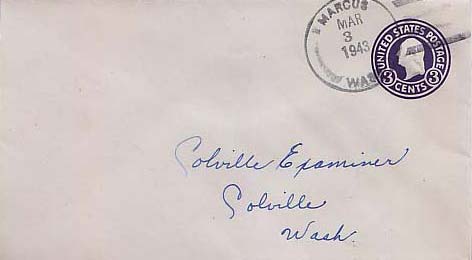 MARCUS
MAR
3
1943
WAS
UNITED STATES POSTAGE
3 CENTS 3
Colville Examiner
Colville
Wash.